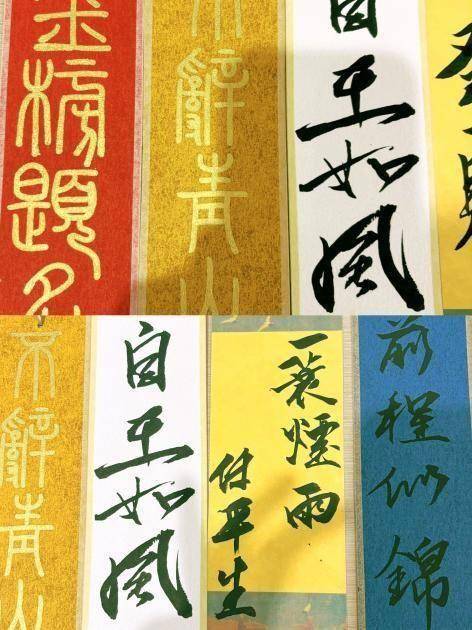 金榜題名
不辭青山
自在如風
不辭青山
自在如風
一蓑煙雨
任平生
前程似錦